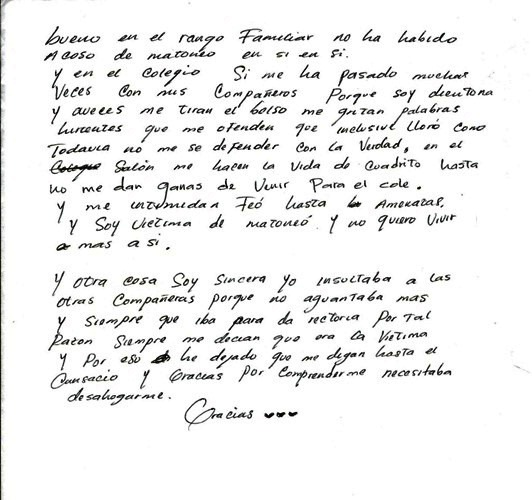 bueno en el rango Familiar no ha habido
Acoso de matoneo en si en si.
Y en el colegio Si me ha pasado muchas
Veces con mis Compañeros Porque soy dientona
y aveces me tiran el bolso me gritan palabras
hirientes que me ofenden que inclusive lloró como
Todavia no me se defender con la Verdad, en el
Salón me hacen la Vida de Cuadrito hasta
no me dan ganas de Venir Para el cole.
Y me intimidan Feó hasta Amenazas,
y Soy Victima de matoneó y no quiero Vivir
mas a si.
Y otra cosa Soy Sincera yo insultaba a las
otras Compañeras porque no aguantaba mas
y Siempre que iba para la rectoria Por Tal
Razon Siempre me decian que era la Victima
y Por eso he dejado que me digan hasta el
Cansacio y Gracias por Comprenderme necesitaba
desahogarme.
Gracias